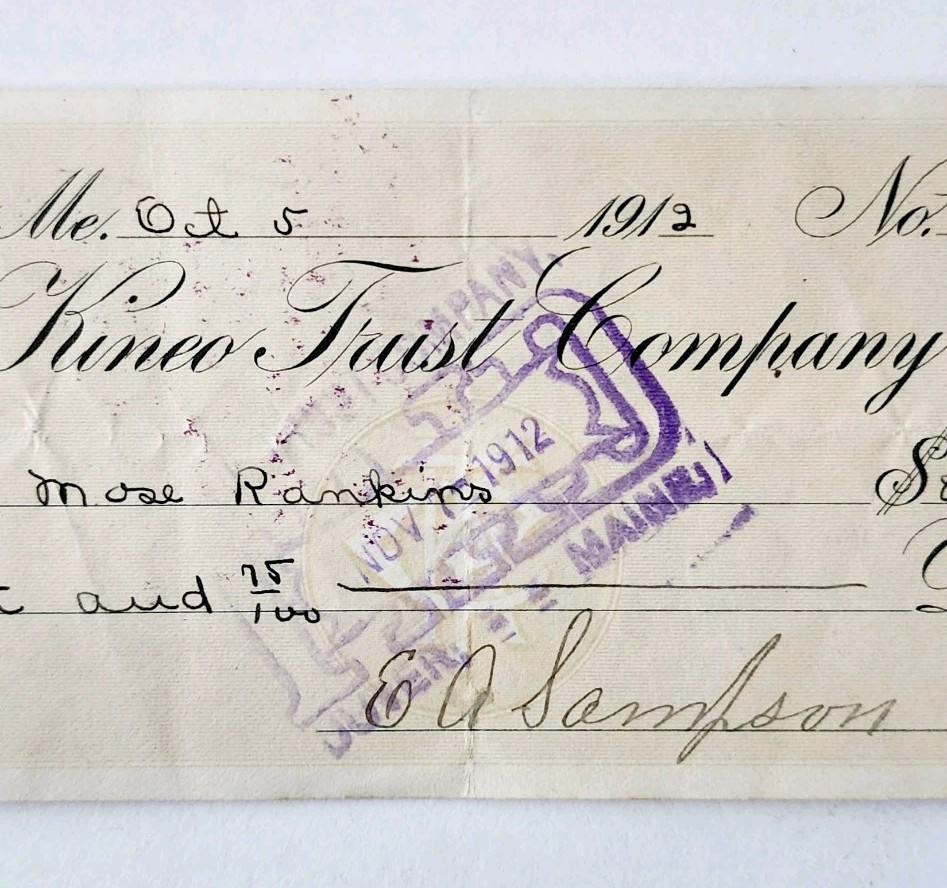 Me. Oct 5 1912 No.
Kineo Trust Company
Mose Rankins $
and 75/100
E A Sampson
TRUST COMPANY,
NOV 1912
DOVER, MAINE